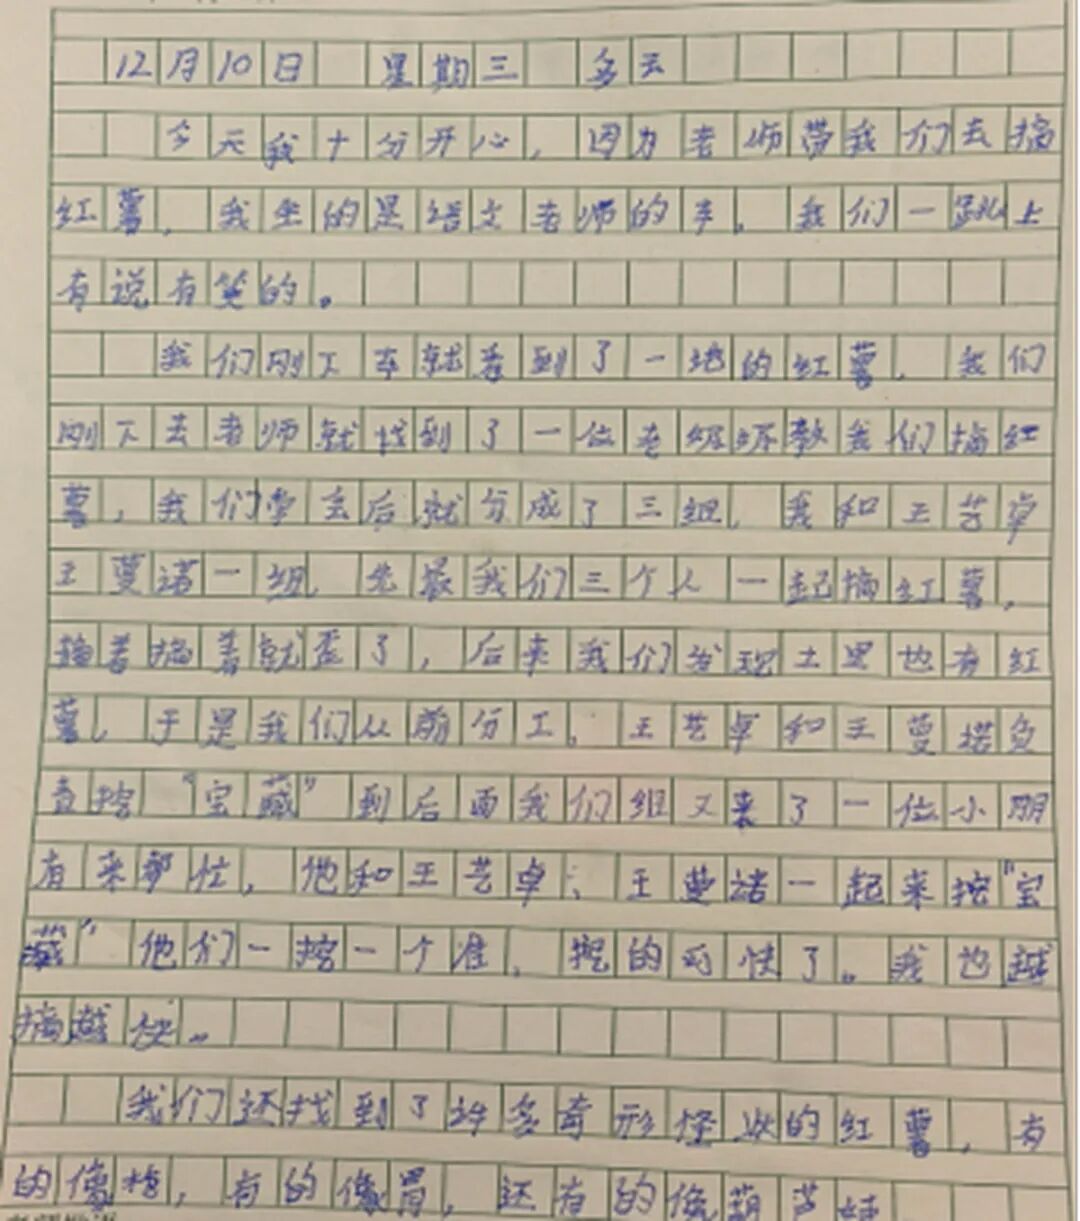 12月10日 星期三 多云
今天我十分开心，因为老师带我们去摘
红薯，我坐的是语文老师的车。我们一路上
有说有笑的。
我们刚下车就看到了一地的红薯，我们
刚下去老师就找到了一位老奶奶教我们摘红
薯，我们学会后就分成了三组，我和王艺卓
王蔓诺一组，先是我们三个人一起摘红薯，
摘着摘着就歪了，后来我们发现土里也有红
薯，于是我们从前分工。王艺卓和王蔓诺负
责挖“宝藏”到后面我们组又来了一位小朋
有来帮忙，他和王艺卓、王蔓诺一起来挖“宝
藏”他们一挖一个准，挖的可快了。我也越
摘越快。
我们还找到了许多奇形怪状的红薯，有
的像梅，有的像胃，还有的像葫芦娃